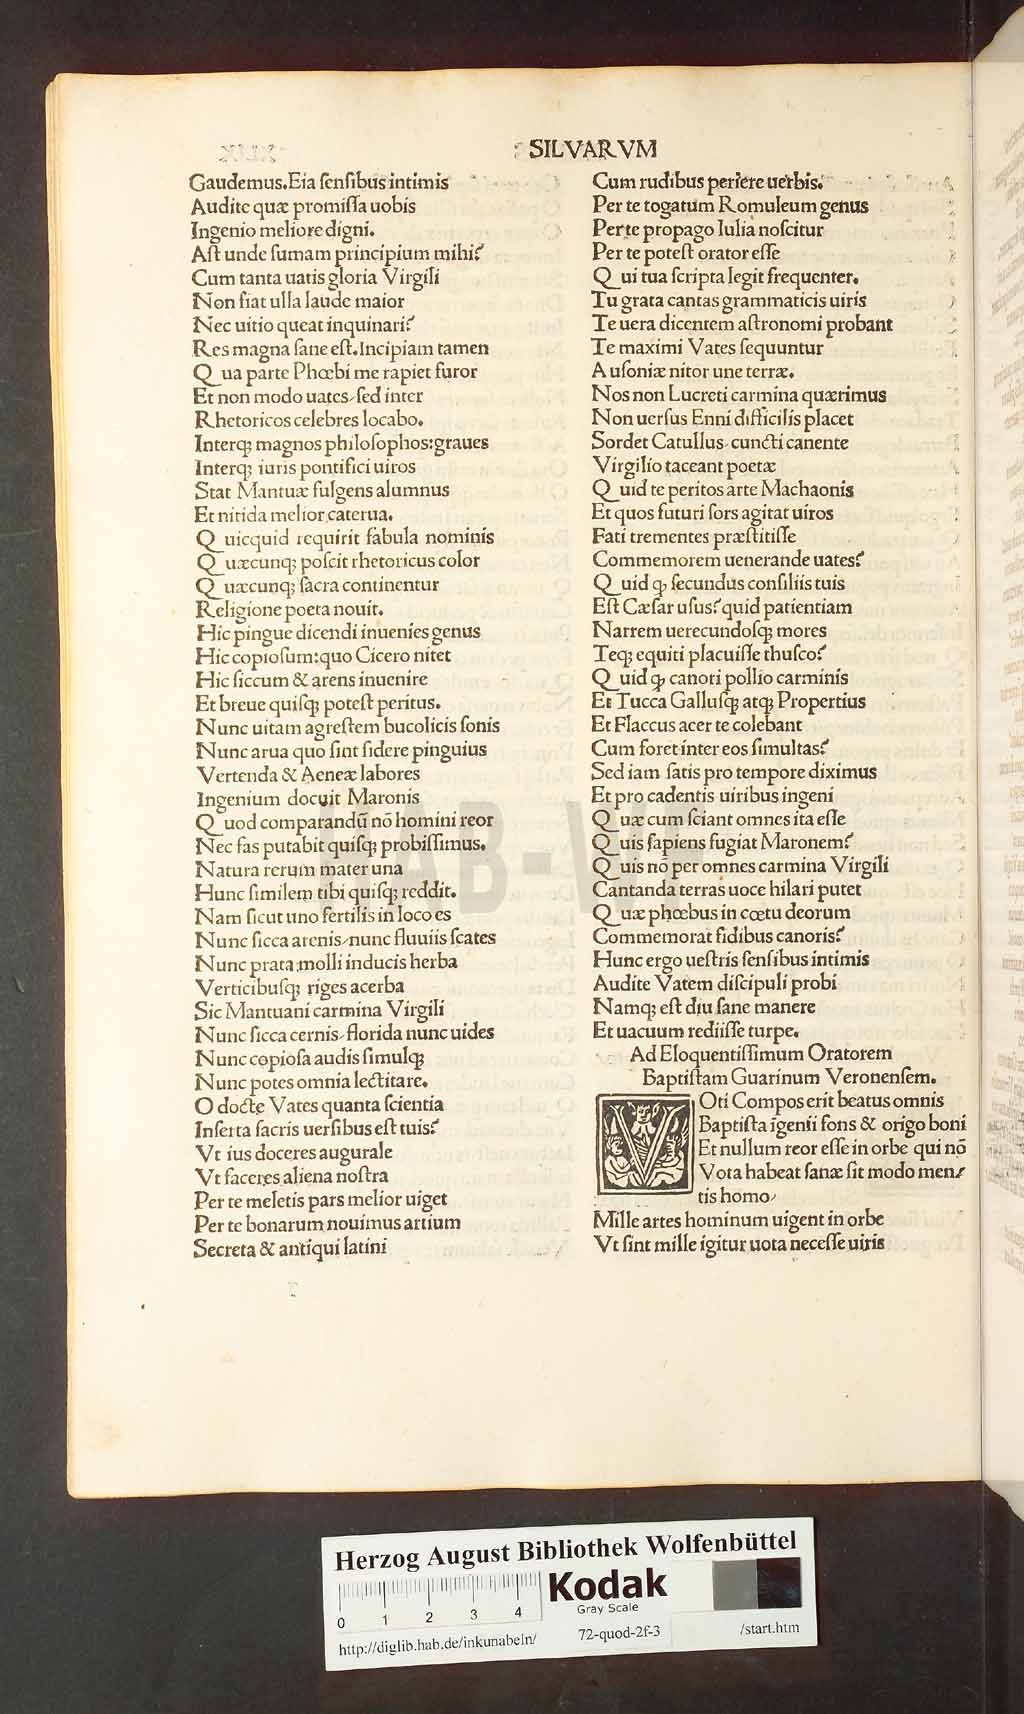 SILVARVM
Gaudemus.Eia sensibus intimis
Audite quæ promissa uobis
Ingenio meliore digni.
Ast unde sumam principium mihi?
Cum tanta uatis gloria Virgili
Non fiat ulla laude maior
Nec uitio queat inquinari?
Res magna sane est.Incipiam tamen
Qua parte Phœbi me rapiet furor
Et non modo uates/sed inter
Rhetoricos celebres locabo.
Interqꝫ magnos philosophos:graues
Interqꝫ iuris pontifici uiros
Stat Mantuæ fulgens alumnus
Et nitida melior caterua.
Quicquid requirit fabula nominis
Quæcunqꝫ poscit rhetoricus color
Quæcunqꝫ sacra continentur
Religione poeta nouit.
Hic pingue dicendi inuenies genus
Hic copiosum:quo Cicero nitet
Hic siccum & arens inuenire
Et breue quisqꝫ potest peritus.
Nunc uitam agrestem bucolicis sonis
Nunc arua quo sint sidere pinguius
Vertenda & Aeneæ labores
Ingenium docuit Maronis
Quod comparandū nō homini reor
Nec fas putabit quisqꝫ probissimus.
Natura rerum mater una
Hunc similem tibi quisqꝫ reddit.
Nam sicut uno fertilis in loco es
Nunc sicca arenis/nunc fluuiis scates
Nunc prata molli inducis herba
Verticibusqꝫ riges acerba
Sic Mantuani carmina Virgili
Nunc sicca cernis/florida nunc uides
Nunc copiosa audis simulqꝫ
Nunc potes omnia lectitare.
O docte Vates quanta scientia
Inserta sacris uersibus est tuis?
Vt ius doceres augurale
Vt faceres aliena nostra
Per te meletis pars melior uiget
Per te bonarum nouimus artium
Secreta & antiqui latini
Cum rudibus periere uerbis.
Per te togatum Romuleum genus
Per te propago Iulia noscitur
Per te potest orator esse
Qui tua scripta legit frequenter.
Tu grata cantas grammaticis uiris
Te uera dicentem astronomi probant
Te maximi Vates sequuntur
Ausoniæ nitor une terræ.
Nos non Lucreti carmina quærimus
Non uersus Enni difficilis placet
Sordet Catullus/cuncti canente
Virgilio taceant poetæ
Quid te peritos arte Machaonis
Et quos futuri sors agitat uiros
Fati trementes præstitisse
Commemorem uenerande uates?
Quid ꝙ secundus consiliis tuis
Est Cæsar usus? quid patientiam
Narrem uerecundosqꝫ mores
Teqꝫ equiti placuisse thusco?
Quid ꝙ canori pollio carminis
Et Tucca Gallusqꝫ atqꝫ Propertius
Et Flaccus acer te colebant
Cum foret inter eos simultas?
Sed iam satis pro tempore diximus
Et pro cadentis uiribus ingeni
Quæ cum sciant omnes ita esse
Quis sapiens fugiat Maronem?
Quis nō per omnes carmina Virgili
Cantanda terras uoce hilari putet
Quæ phœbus in cœtu deorum
Commemorat fidibus canoris?
Hunc ergo uestris sensibus intimis
Audite Vatem discipuli probi
Namqꝫ est diu sane manere
Et uacuum rediisse turpe.
Ad Eloquentissimum Oratorem
Baptistam Guarinum Veronensem.
VOti Compos erit beatus omnis
Baptista īgenii fons & origo boni
Et nullum reor esse in orbe qui nō
Vota habeat sanæ sit modo men/
tis homo/
Mille artes hominum uigent in orbe
Vt sint mille igitur uota necesse uiris
HAB-WF
Herzog August Bibliothek Wolfenbüttel
0 1 2 3 4
Kodak
Gray Scale
http://diglib.hab.de/inkunabeln/ 72-quod-2f-3 /start.htm